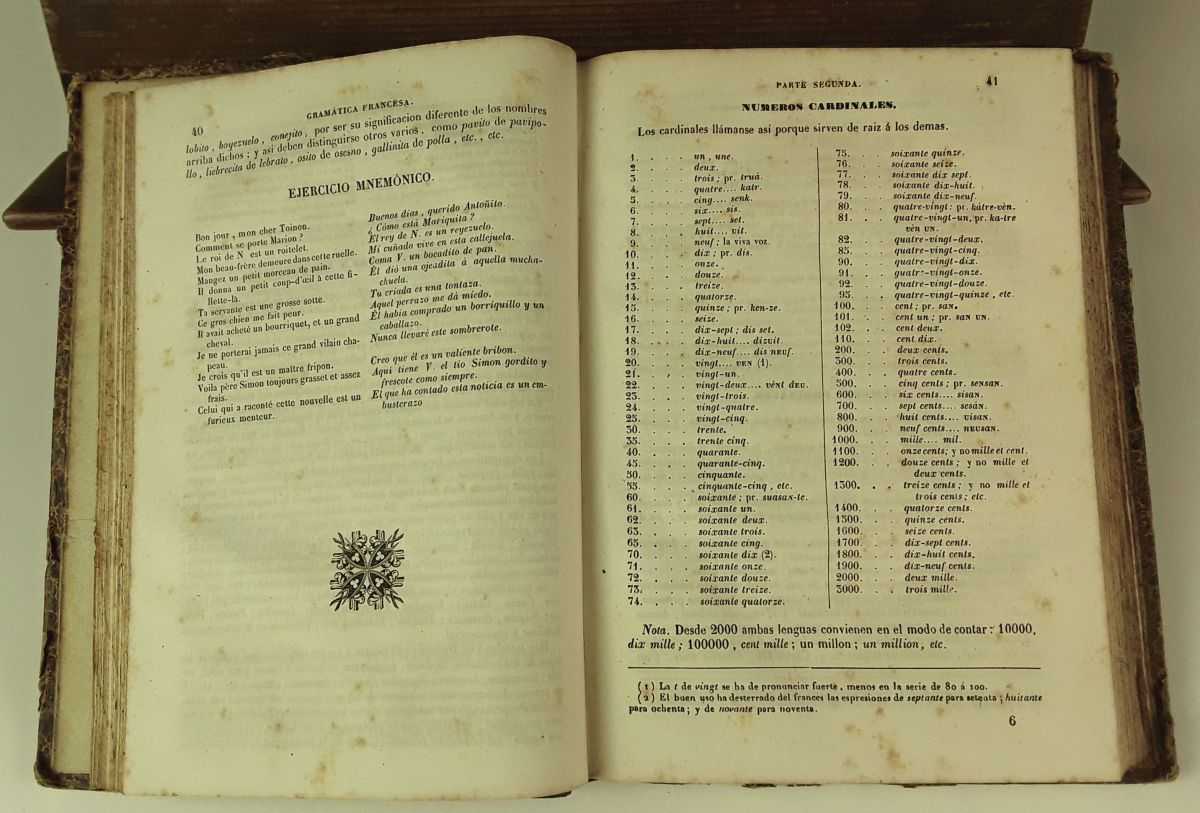 40
GRAMÁTICA FRANCESA.
lobito, boyezuelo, conejito, por ser su significacion diferente de los nombres
arriba dichos; y asi deben distinguirse otros varios, como pavito de pavipo-
llo, liebrecita de lebrato, osito de osesno, gallinita de polla, etc., etc.
EJERCICIO MNEMÓNICO.
Bon jour, mon cher Toinon.
Comment se porte Marion?
Le roi de N est un roitelet.
Mon beau-frère demeure dans cette ruelle.
Mangez un petit morceau de pain.
Il donna un petit coup-d'œil à cette fi-
llette-là.
Ta servante est une grosse sotte.
Ce gros chien me fait peur.
Il avait acheté un bourriquet, et un grand
cheval.
Je ne porterai jamais ce grand vilain cha-
peau.
Je crois qu'il est un maître fripon.
Voila père Simon toujours grasset et assez
frais.
Celui qui a raconté cette nouvelle est un
furieux menteur.
Buenos dias, querido Antoñito.
¿Cómo está Mariquita?
El rey de N. es un reyezuelo.
Mi cuñado vive en esta callejuela.
Coma V. un bocadito de pan.
Él dió una ojeadita á aquella mucha-
chuela.
Tu criada es una tontaza.
Aquel perrazo me dá miedo.
Él habia comprado un borriquillo y un
caballazo.
Nunca llevaré este sombrerote.
Creo que él es un valiente bribon.
Aqui tiene V. el tio Simon gordito y
frescote como siempre.
El que ha contado esta noticia es un em-
busterazo
PARTE SEGUNDA.
41
NUMEROS CARDINALES.
Los cardinales llámanse asi porque sirven de raiz á los demas.
1. . . . un, une.
2. . . . deux.
3. . . . trois; pr. truá.
4. . . . quatre.... katr.
5. . . . cinq.... senk.
6. . . . six.... sis.
7. . . . sept.... set.
8. . . . huit.... vit.
9. . . . neuf; la viva voz.
10. . . . dix; pr. dis.
11. . . . onze.
12. . . . douze.
13. . . . treize.
14. . . . quatorze.
15. . . . quinze; pr. ken-ze.
16. . . . seize.
17. . . . dix-sept; dis set.
18. . . . dix-huit.... dizvit.
19. . . . dix-neuf.... dis neuf.
20. . . . vingt.... ven (1).
21. . . . vingt-un.
22. . . . vingt-deux.... vènt deu.
23. . . . vingt-trois.
24. . . . vingt-quatre.
25. . . . vingt-cinq.
30. . . . trente.
35. . . . trente cinq.
40. . . . quarante.
45. . . . quarante-cinq.
50. . . . cinquante.
55. . . . cinquante-cinq, etc.
60. . . . soixante; pr. suasan-te.
61. . . . soixante un.
62. . . . soixante deux.
63. . . . soixante trois.
65. . . . soixante cinq.
70. . . . soixante dix (2).
71. . . . soixante onze.
72. . . . soixante douze.
73. . . . soixante treize.
74. . . . soixante quatorze.
75. . . soixante quinze.
76. . . soixante seize.
77. . . soixante dix sept.
78. . . soixante dix-huit.
79. . . soixante dix-neuf.
80. . . quatre-vingt: pr. kátre-vèn.
81. . . quatre-vingt-un, pr. ka-tre
vèn un.
82. . . quatre-vingt-deux.
85. . . quatre-vingt-cinq.
90. . . quatre-vingt-dix.
91. . . quatre-vingt-onze.
92. . . quatre-vingt-douze.
95. . . quatre-vingt-quinze, etc.
100. . . cent; pr. san.
101. . . cent un; pr. san un.
102. . . cent deux.
110. . . cent dix.
200. . . deux cents.
300. . . trois cents.
400. . . quatre cents.
500. . . cinq cents; pr. sensan.
600. . . six cents.... sisan.
700. . . sept cents.... sesán.
800. . . huit cents.... visan.
900. . . neuf cents.... neusan.
1000. . . mille.... mil.
1100. . . onze cents; y no mille et cent.
1200. . . douze cents; y no mille et
deux cents.
1300. . . treize cents; y no mille et
trois cents; etc.
1400. . . quatorze cents.
1500. . . quinze cents.
1600. . . seize cents.
1700. . . dix-sept cents.
1800. . . dix-huit cents.
1900. . . dix-neuf cents.
2000. . . deux mille.
3000. . . trois mille.
Nota. Desde 2000 ambas lenguas convienen en el modo de contar: 10000,
dix mille; 100000, cent mille; un millon; un million, etc.
(1) La t de vingt se ha de pronunciar fuerte, menos en la serie de 80 á 100.
(2) El buen uso ha desterrado del frances las espresiones de septante para setenta; huitante
para ochenta; y de novante para noventa.
6